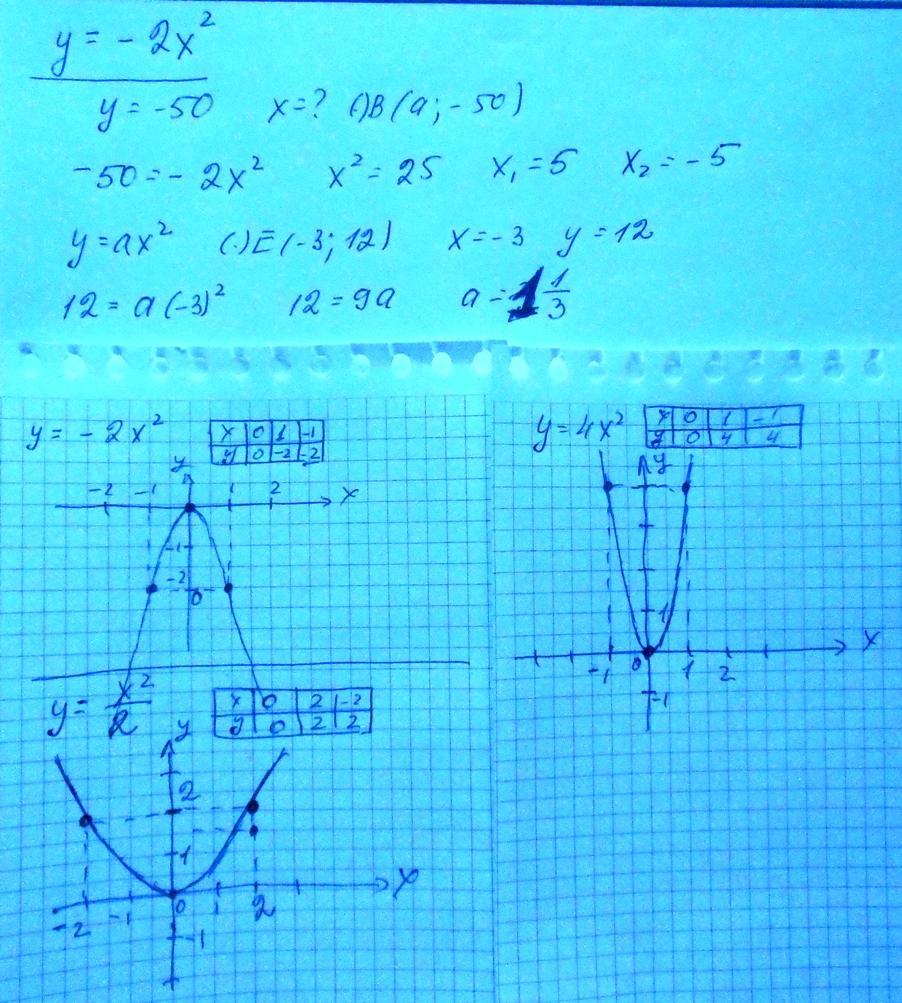 y = - 2x²
y = -50 x = ? (·)B(a; -50)
-50 = - 2x² x² = 25 x₁ = 5 x₂ = -5
y = ax² (·)E(-3; 12) x = -3 y = 12
12 = a(-3)² 12 = 9a a = 1 1/3
y = - 2x²
x 0 1 -1
y 0 -2 -2
y
-2 -1 1 2 x
-1
-2
0
y = 4x²
x 0 1 -1
y 0 4 4
y
1
-1 0 1 2 x
-1
y = x²/2
x 0 2 -2
y 0 2 2
y
2
1
x
-2 -1 0 1 2
-1